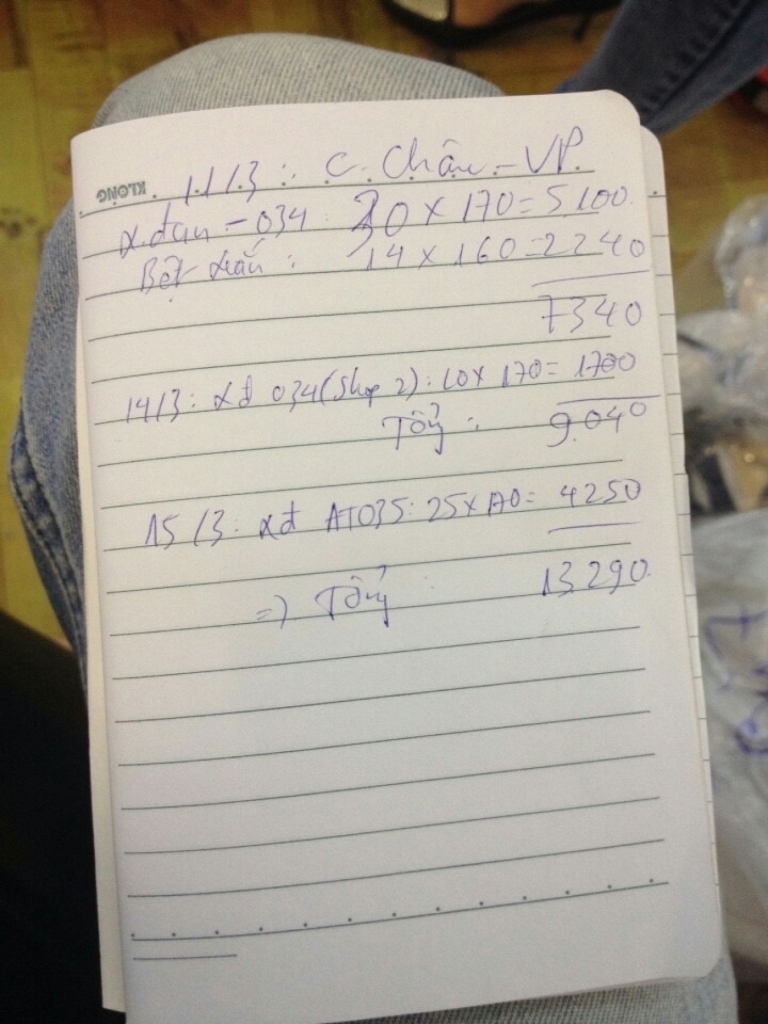 KLONG
11/3: C. Châu - VP.
x.đan - 034: 30 x 170 = 5.100.
Bệt xoắn: 14 x 160 = 2240
7340
14/3: xđ 034 (Shop 2): 10 x 170 = 1700
Tổng: 9.040
15/3: xđ AT035: 25 x 170 = 4250
=> Tổng: 13.290.